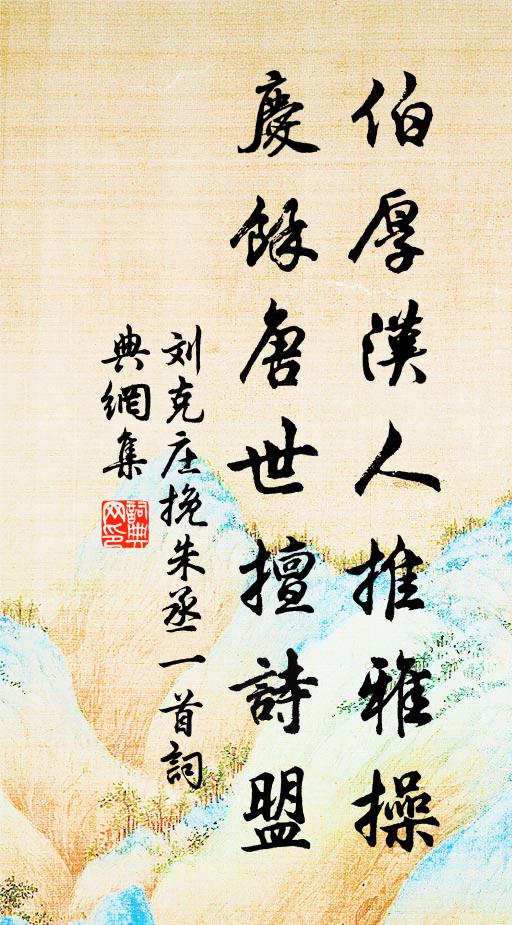 伯厚漢人推雅操
慶餘唐世擅詩盟
刘克庄挽朱丞一首詞
典網集
詞典
网印